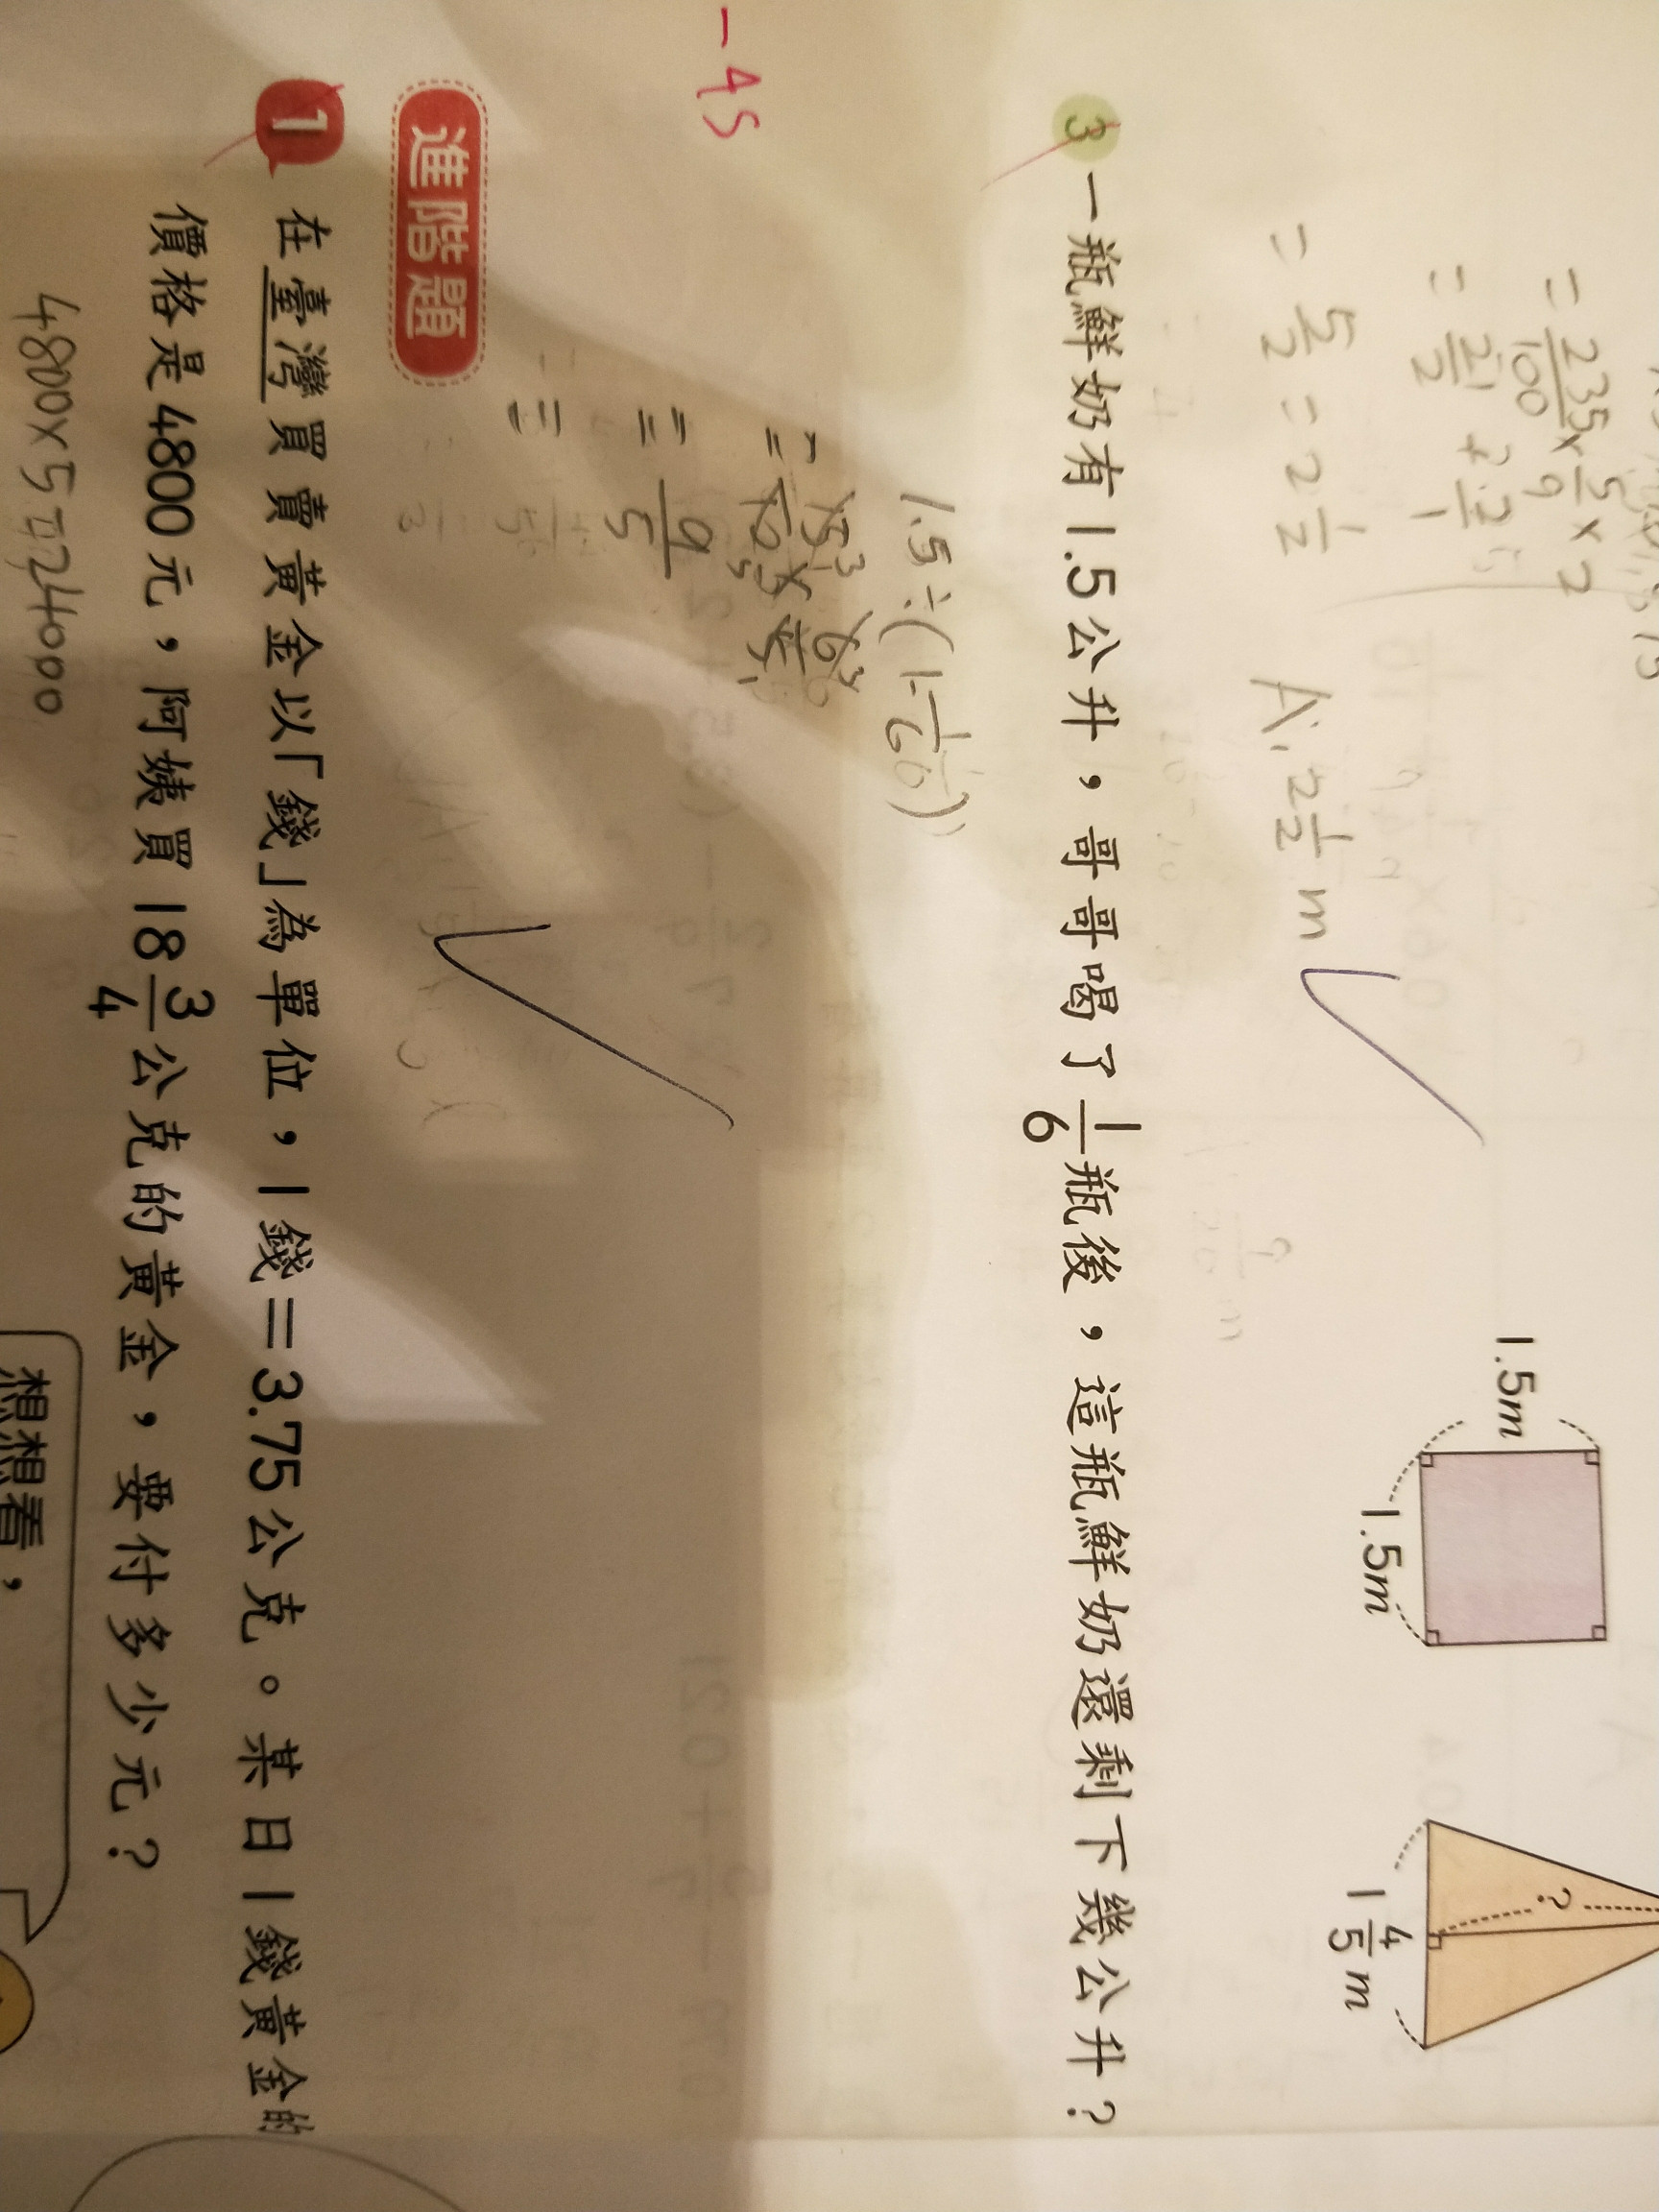 = 235/100 × 5/9 × 2
= 21/2
= 5/2 = 2 1/2
A: 2 1/2 m
1.5m
1.5m
?
1 4/5 m
3 一瓶鮮奶有1.5公升，哥哥喝了1/6瓶後，這瓶鮮奶還剩下幾公升？
1.5÷(1-1/6)
= 9/5
-45
進階題
1 在臺灣買賣黃金以「錢」為單位，1錢=3.75公克。某日1錢黃金的
價格是4800元，阿姨買18 3/4公克的黃金，要付多少元？
4800×5=24000
想想看，